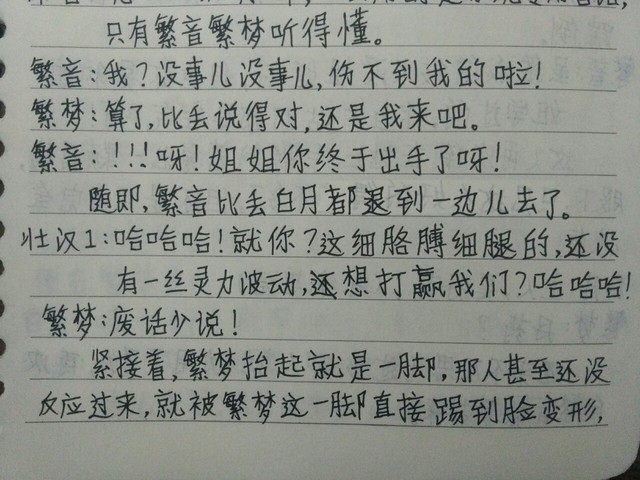 只有繁音繁梦听得懂。
繁音:我?没事儿没事儿,伤不到我的啦!
繁梦:算了,比丢说得对,还是我来吧。
繁音:!!!呀!姐姐你终于出手了呀!
随即,繁音比丢白月都退到一边儿去了。
壮汉1:哈哈哈!就你?这细胳膊细腿的,还没
有一丝灵力波动,还想打赢我们?哈哈哈!
繁梦:废话少说!
紧接着,繁梦抬起就是一脚,那人甚至还没
反应过来,就被繁梦这一脚直接踢到脸变形,